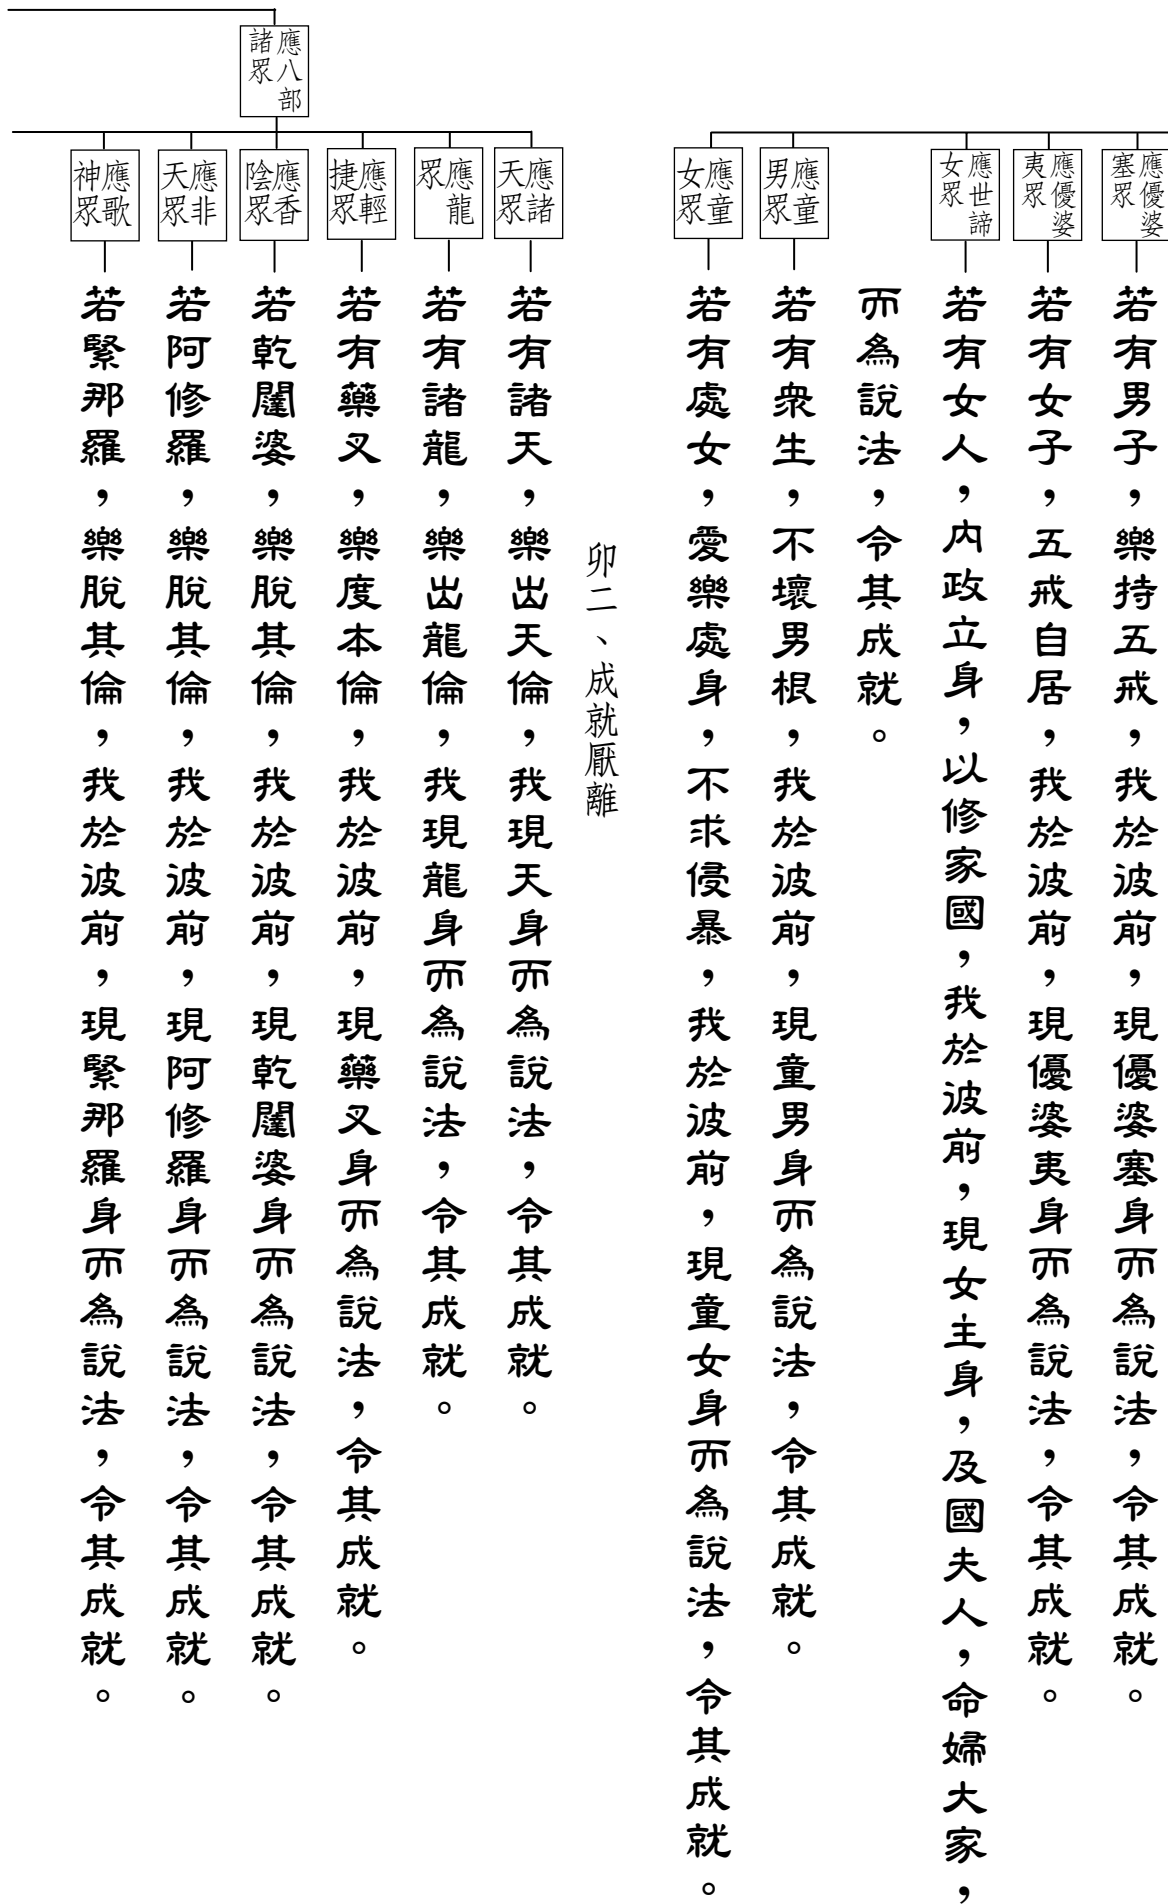 應優婆
塞眾
若有男子，樂持五戒，我於波前，現優婆塞身而為說法，令其成就。
應優婆
夷眾
若有女子，五戒自居，我於波前，現優婆夷身而為說法，令其成就。
應世諦
女眾
若有女人，內政立身，以修家國，我於波前，現女主身，及國夫人，命婦大家，
而為說法，令其成就。
應童
男眾
若有衆生，不壞男根，我於波前，現童男身而為說法，令其成就。
應童
女眾
若有處女，愛樂處身，不求侵暴，我於波前，現童女身而為說法，令其成就。
卯二、成就厭離
應八部
諸眾
應諸
天眾
若有諸天，樂出天倫，我現天身而為說法，令其成就。
應龍
眾
若有諸龍，樂出龍倫，我現龍身而為說法，令其成就。
應輕
捷眾
若有藥叉，樂度本倫，我於波前，現藥叉身而為說法，令其成就。
應香
陰眾
若乾闥婆，樂脫其倫，我於波前，現乾闥婆身而為說法，令其成就。
應非
天眾
若阿修羅，樂脫其倫，我於波前，現阿修羅身而為說法，令其成就。
應歌
神眾
若緊那羅，樂脫其倫，我於波前，現緊那羅身而為說法，令其成就。